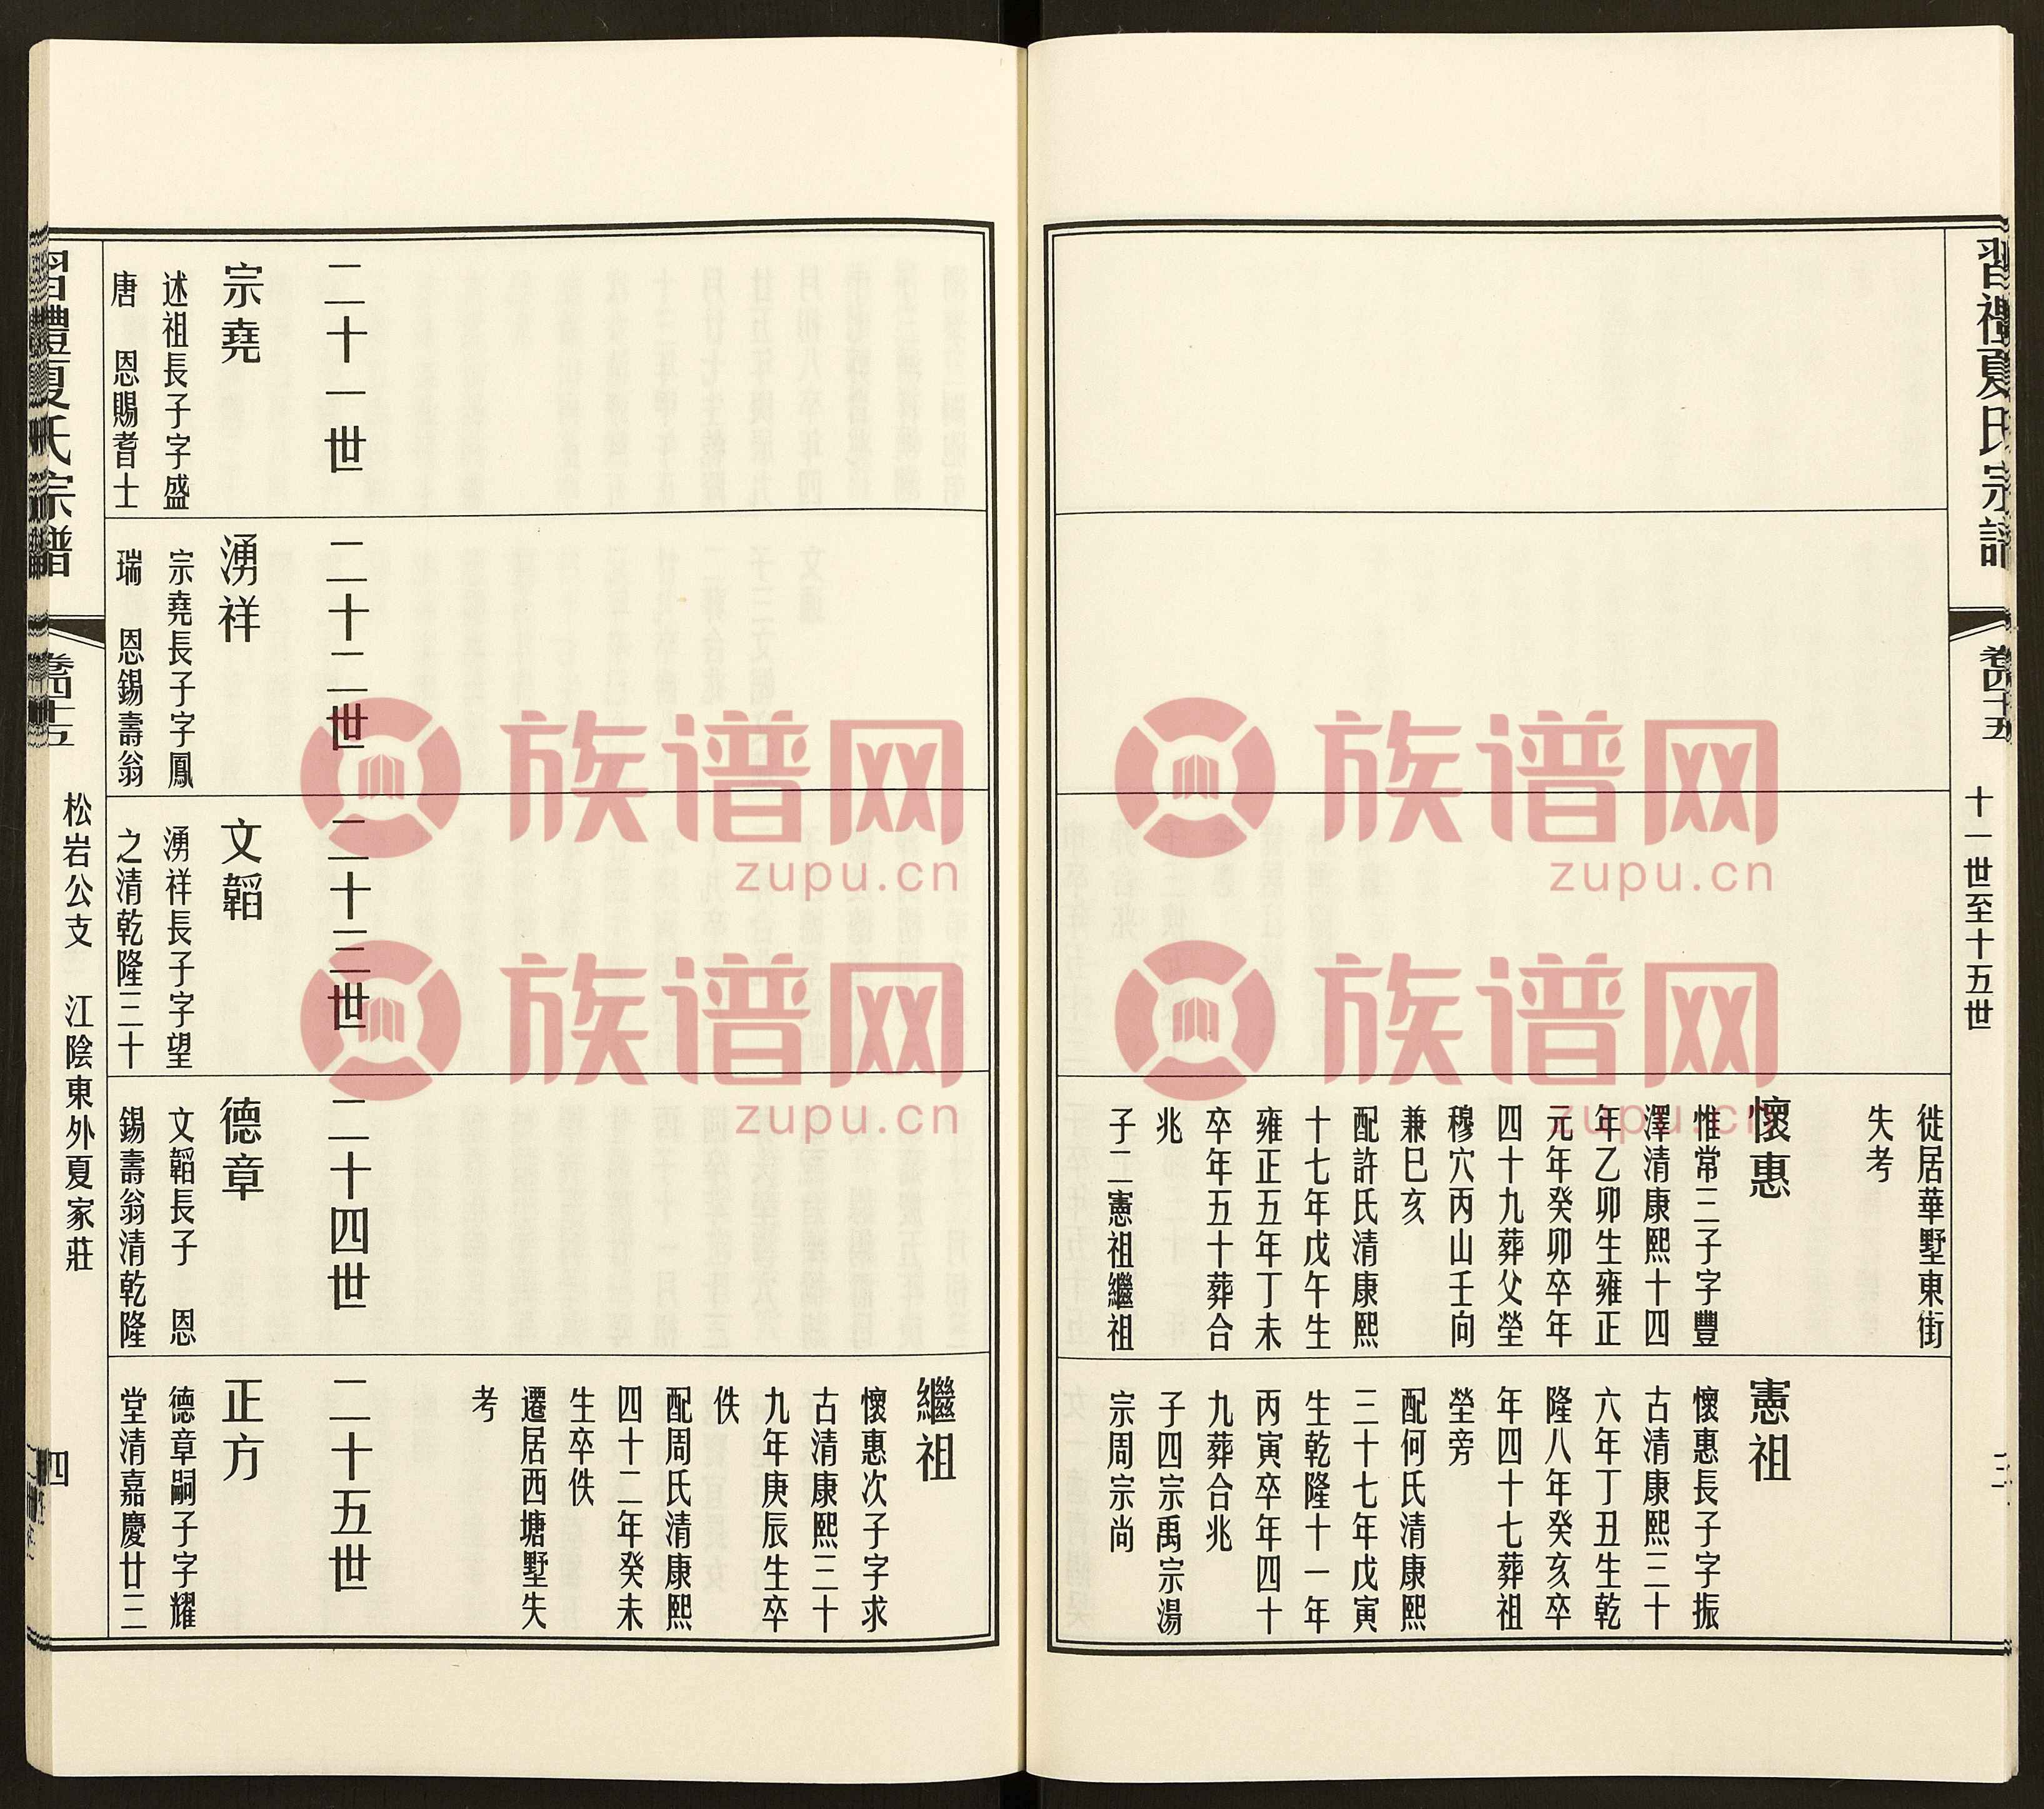 習禮夏氏宗譜
卷四十五
十一世至十五世
徙居華墅東街
失考
懷惠
惟常三子字豐
澤清康熙十四
年乙卯生雍正
元年癸卯卒年
四十九葬父塋
穆穴丙山壬向
兼巳亥
配許氏清康熙
十七年戊午生
雍正五年丁未
卒年五十葬合
兆
子二憲祖繼祖
憲祖
懷惠長子字振
古清康熙三十
六年丁丑生乾
隆八年癸亥卒
年四十七葬祖
塋旁
配何氏清康熙
三十七年戊寅
生乾隆十一年
丙寅卒年四十
九葬合兆
子四宗禹宗湯
宗周宗尚
繼祖
懷惠次子字求
古清康熙三十
九年庚辰生卒
佚
配周氏清康熙
四十二年癸未
生卒佚
遷居西塘墅失
考
二十一世
宗堯
述祖長子字盛
唐 恩賜耆士
二十二世
湧祥
宗堯長子字鳳
瑞 恩錫壽翁
二十三世
文韜
湧祥長子字望
之清乾隆三十
二十四世
德章
文韜長子 恩
錫壽翁清乾隆
二十五世
正方
德章嗣子字耀
堂清嘉慶廿三
習禮夏氏宗譜
卷四十五
松岩公支 江陰東外夏家莊
四
族谱网
zupu.cn
族谱网
zupu.cn
族谱网
zupu.cn
族谱网
zupu.cn